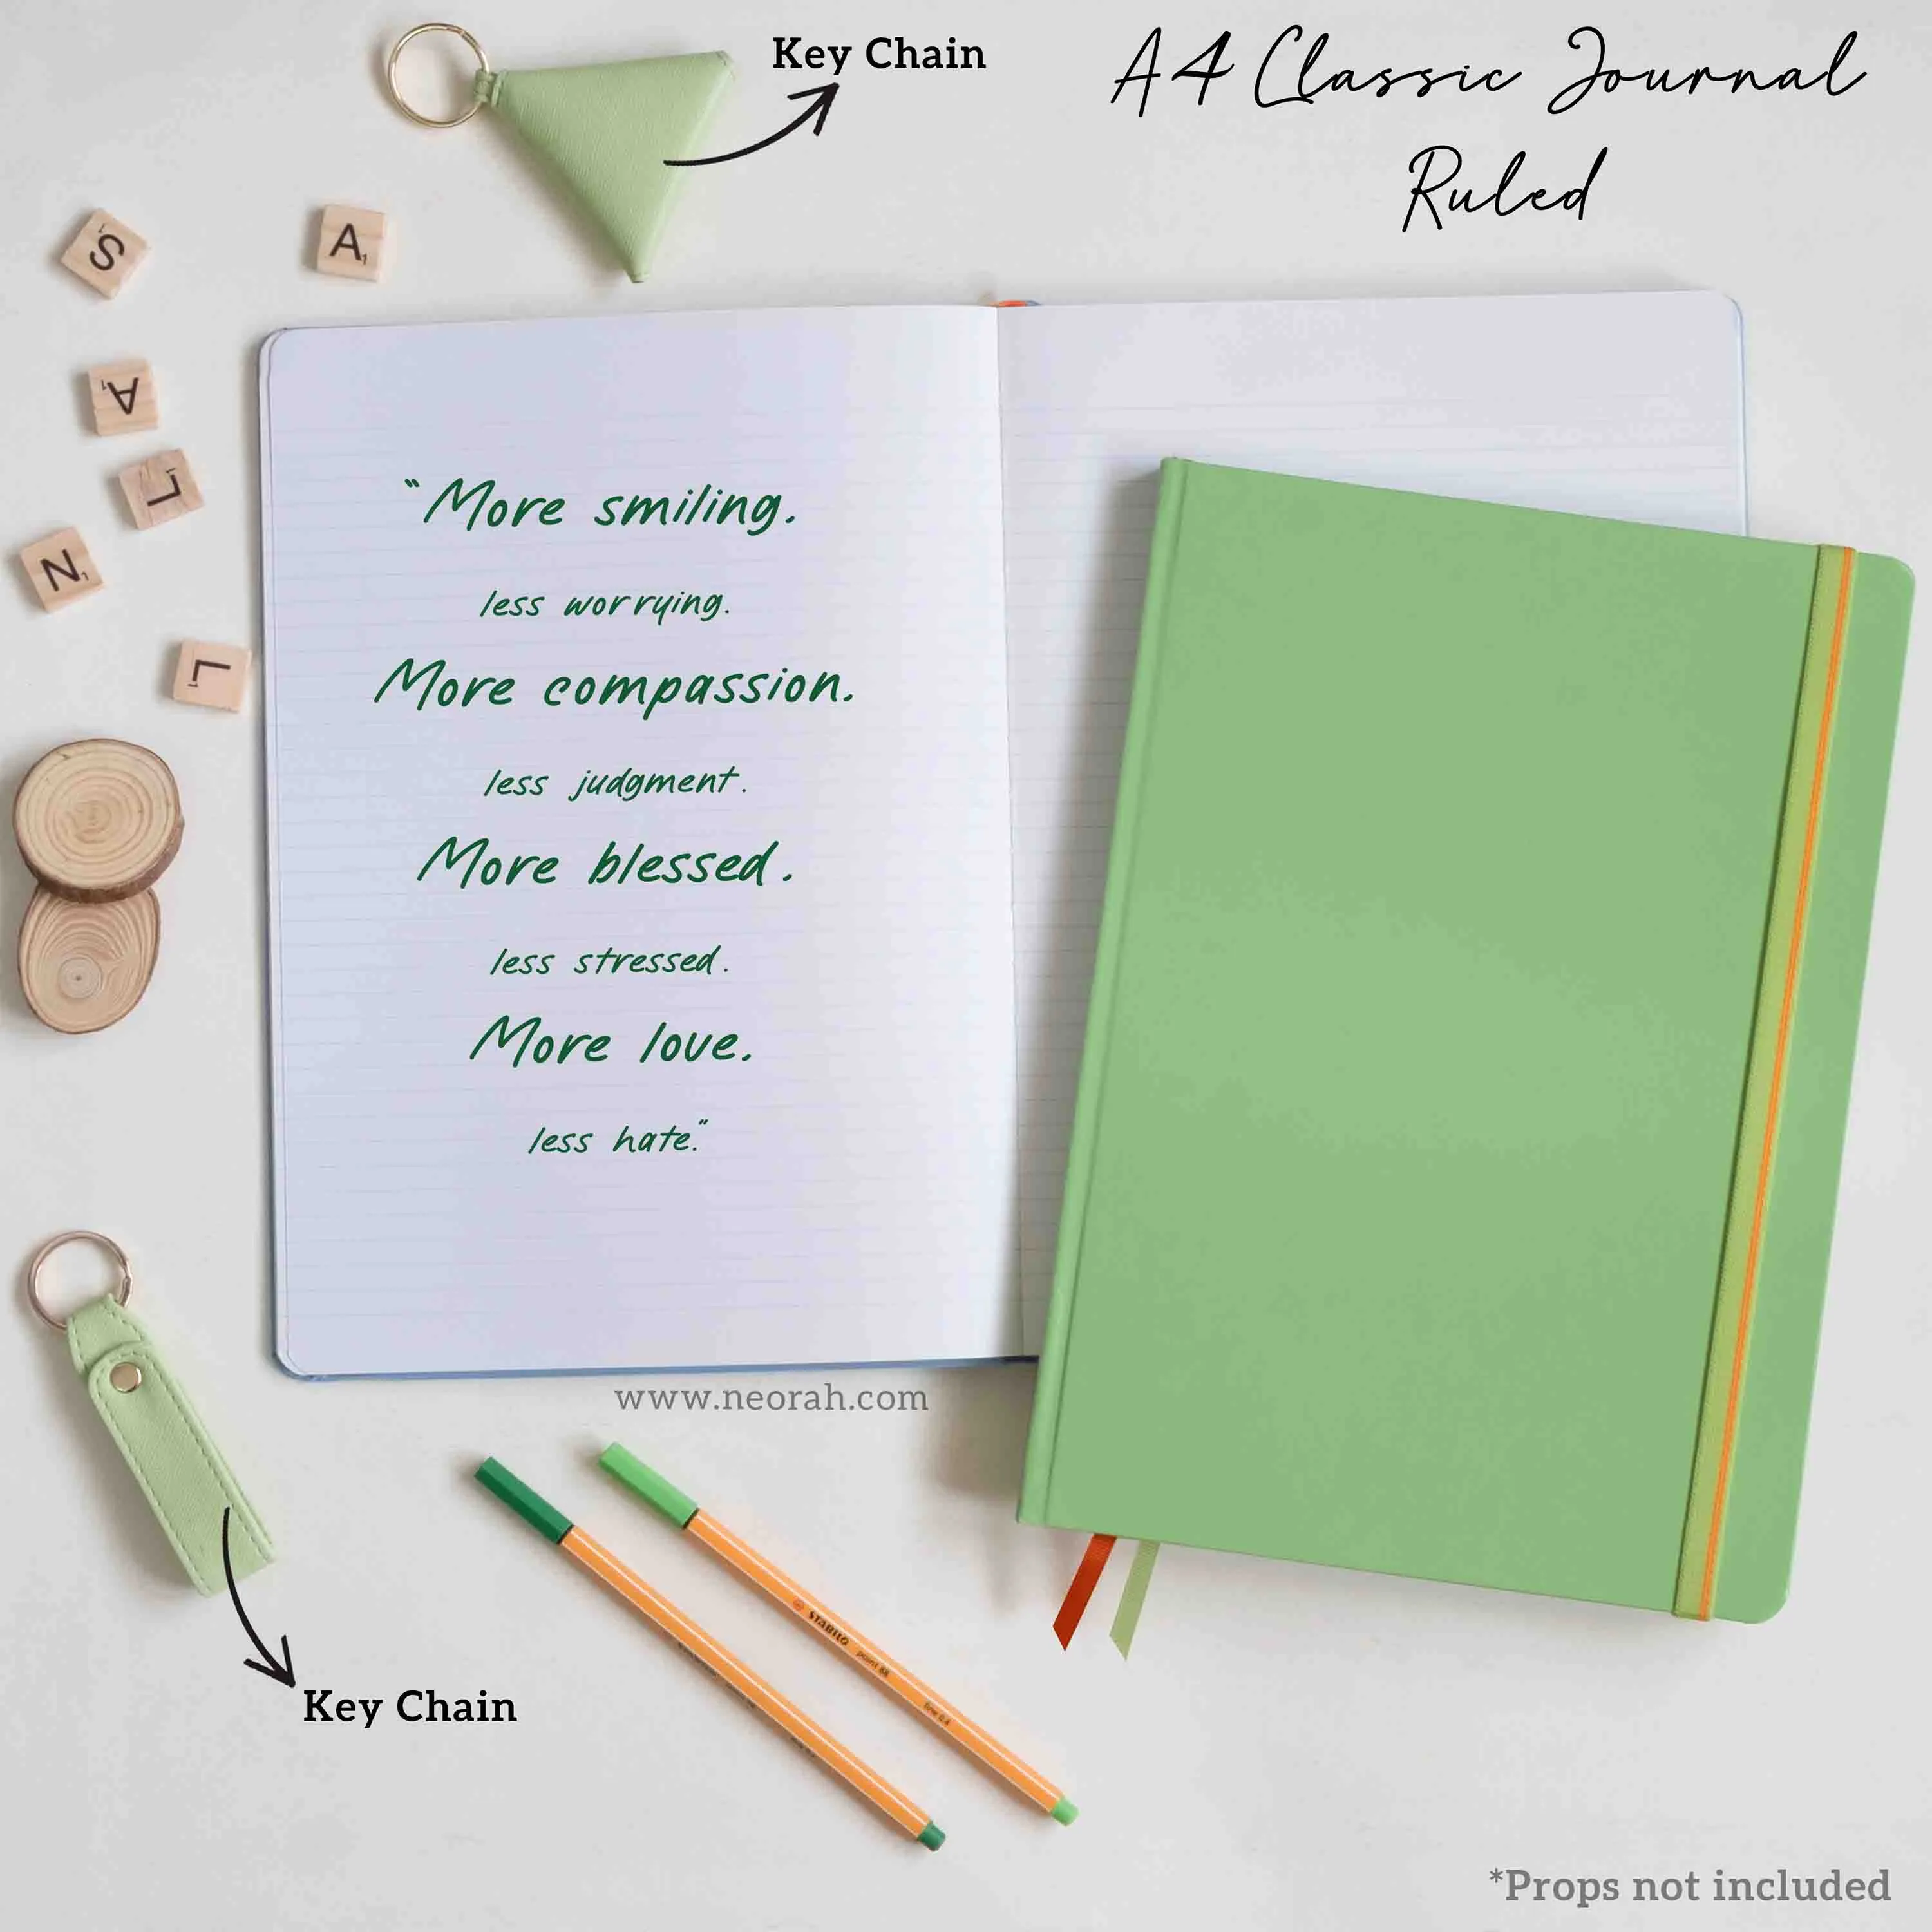 Key Chain
A4 Classic Journal
Ruled
S1
A1
A1
L1
N1
L1
"More smiling.
less worrying.
More compassion.
less judgment.
More blessed.
less stressed.
More love.
less hate."
www.neorah.com
STABILO point 88 fine 0.4
Key Chain
*Props not included